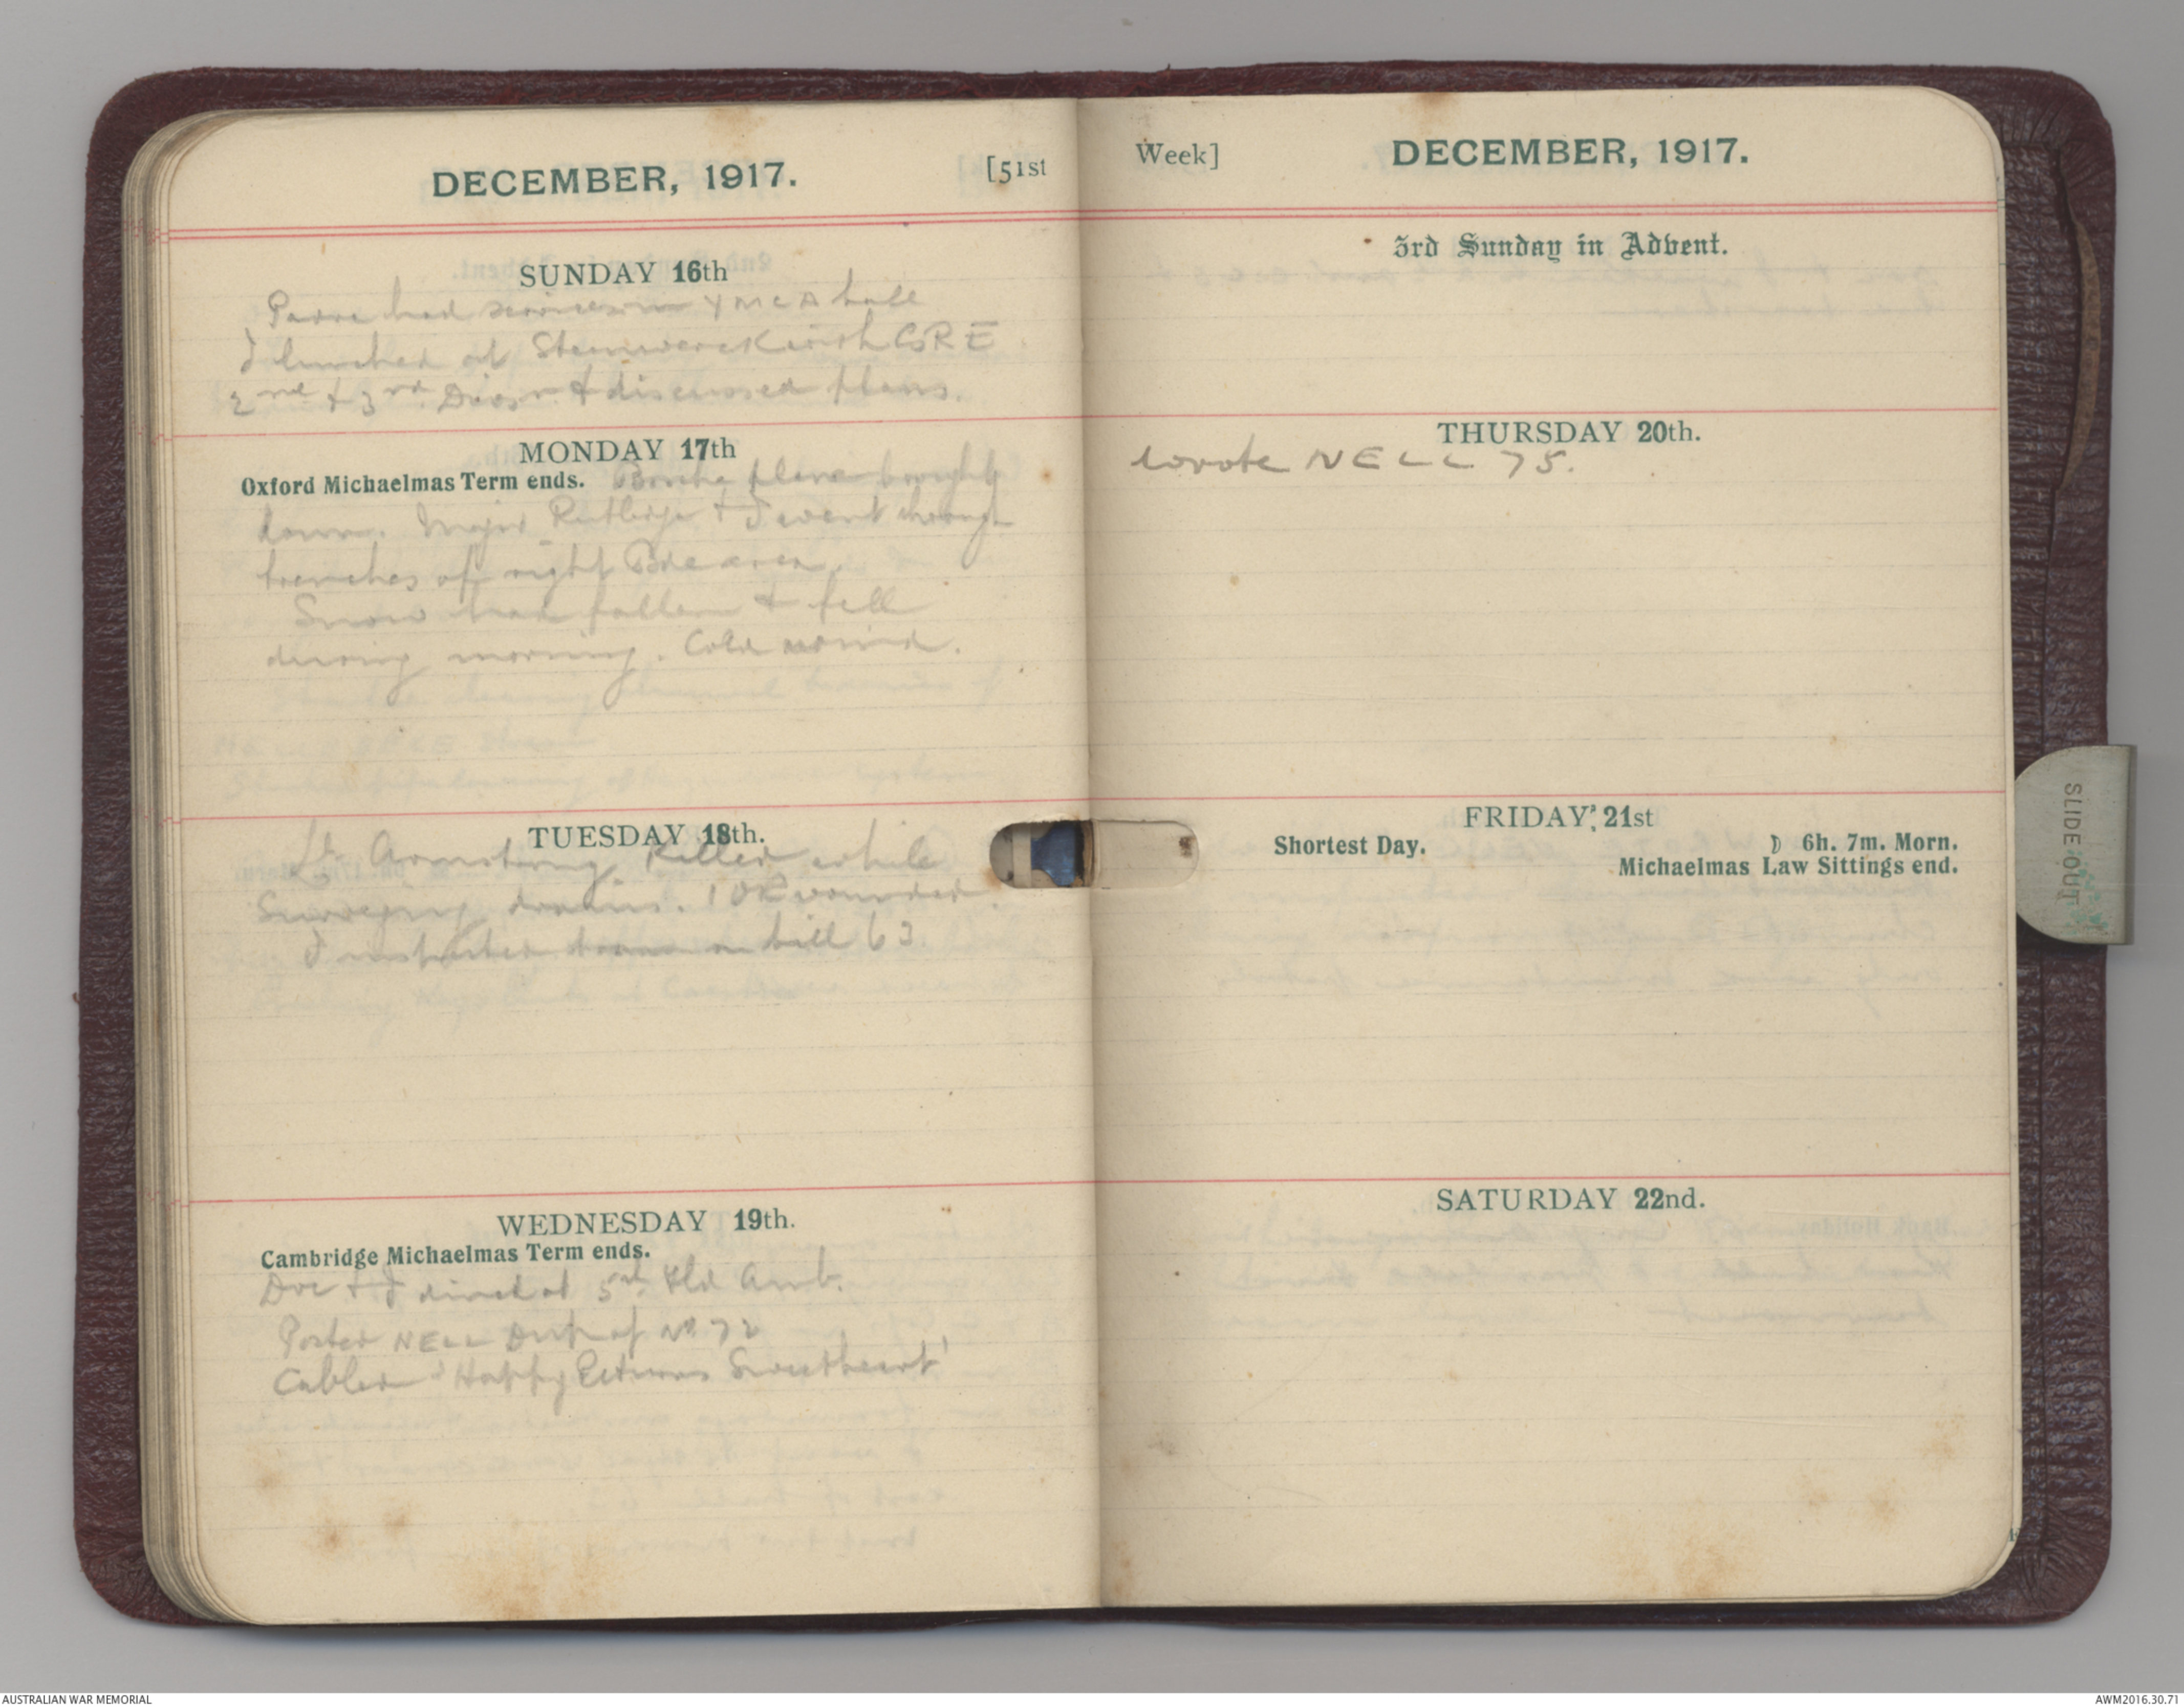 DECEMBER, 1917. [51st
SUNDAY 16th
Padre had services in YMCA hall
I lunched at Steenwerck with CRE
2nd & 3rd Divsn & discussed plans.
MONDAY 17th
Oxford Michaelmas Term ends. Boche plane brought
down. Major Rutledge & I went through
trenches of right Bde area.
Snow had fallen & fell
during morning. Cold wind.
TUESDAY 18th.
Lt Armstrong killed while
Surveying drains. 1 OR wounded.
I inspected on hill 63.
WEDNESDAY 19th.
Cambridge Michaelmas Term ends.
Doc & I dined at 5th Fld Amb.
Posted NELL Dup of No 72
Cabled 'Happy Returns Sweetheart'
Week] DECEMBER, 1917.
3rd Sunday in Advent.
THURSDAY 20th.
wrote NELL 75.
FRIDAY, 21st
Shortest Day. ☽ 6h. 7m. Morn.
Michaelmas Law Sittings end.
SATURDAY 22nd.
SLIDE OUT
AUSTRALIAN WAR MEMORIAL
AWM2016.30.71